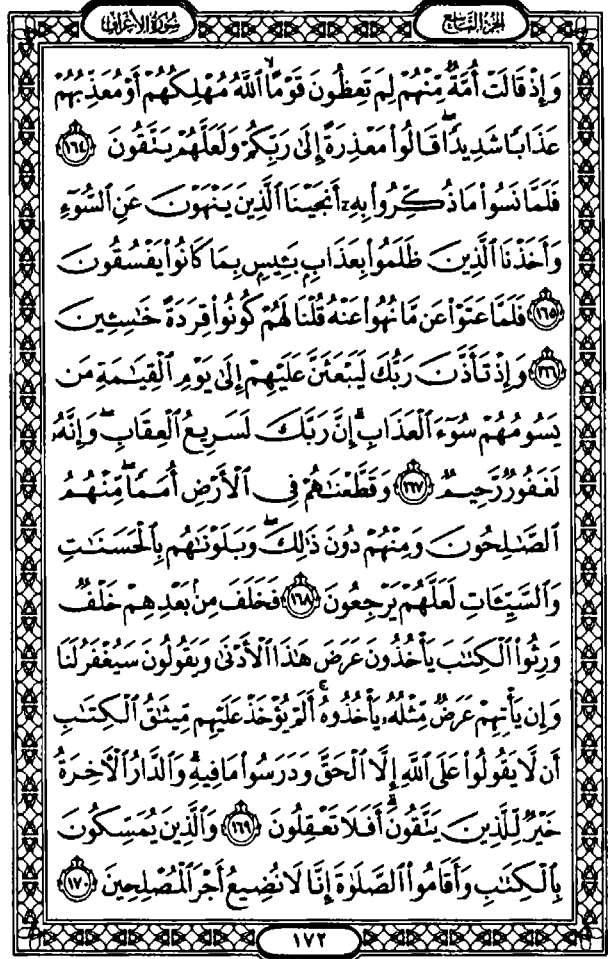 الجزء التاسع
سورة الأعراف
وَإِذْ قَالَتْ أُمَّةٌ مِّنْهُمْ لِمَ تَعِظُونَ قَوْمًا ٱللَّهُ مُهْلِكُهُمْ أَوْ مُعَذِّبُهُمْ
عَذَابًا شَدِيدًا ۖ قَالُوا۟ مَعْذِرَةً إِلَىٰ رَبِّكُمْ وَلَعَلَّهُمْ يَتَّقُونَ ١٦٤
فَلَمَّا نَسُوا۟ مَا ذُكِّرُوا۟ بِهِۦٓ أَنجَيْنَا ٱلَّذِينَ يَنْهَوْنَ عَنِ ٱلسُّوٓءِ
وَأَخَذْنَا ٱلَّذِينَ ظَلَمُوا۟ بِعَذَابٍۭ بَـِٔيسٍۭ بِمَا كَانُوا۟ يَفْسُقُونَ
١٦٥ فَلَمَّا عَتَوْا۟ عَن مَّا نُهُوا۟ عَنْهُ قُلْنَا لَهُمْ كُونُوا۟ قِرَدَةً خَـٰسِـِٔينَ
١٦٦ وَإِذْ تَأَذَّنَ رَبُّكَ لَيَبْعَثَنَّ عَلَيْهِمْ إِلَىٰ يَوْمِ ٱلْقِيَـٰمَةِ مَن
يَسُومُهُمْ سُوٓءَ ٱلْعَذَابِ ۗ إِنَّ رَبَّكَ لَسَرِيعُ ٱلْعِقَابِ ۖ وَإِنَّهُۥ
لَغَفُورٌ رَّحِيمٌ ١٦٧ وَقَطَّعْنَـٰهُمْ فِى ٱلْأَرْضِ أُمَمًا ۖ مِّنْهُمُ
ٱلصَّـٰلِحُونَ وَمِنْهُمْ دُونَ ذَٰلِكَ ۖ وَبَلَوْنَـٰهُم بِٱلْحَسَنَـٰتِ
وَٱلسَّيِّـَٔاتِ لَعَلَّهُمْ يَرْجِعُونَ ١٦٨ فَخَلَفَ مِنۢ بَعْدِهِمْ خَلْفٌ
وَرِثُوا۟ ٱلْكِتَـٰبَ يَأْخُذُونَ عَرَضَ هَـٰذَا ٱلْأَدْنَىٰ وَيَقُولُونَ سَيُغْفَرُ لَنَا
وَإِن يَأْتِهِمْ عَرَضٌ مِّثْلُهُۥ يَأْخُذُوهُ ۚ أَلَمْ يُؤْخَذْ عَلَيْهِم مِّيثَـٰقُ ٱلْكِتَـٰبِ
أَن لَّا يَقُولُوا۟ عَلَى ٱللَّهِ إِلَّا ٱلْحَقَّ وَدَرَسُوا۟ مَا فِيهِ ۗ وَٱلدَّارُ ٱلْـَٔاخِرَةُ
خَيْرٌ لِّلَّذِينَ يَتَّقُونَ ۗ أَفَلَا تَعْقِلُونَ ١٦٩ وَٱلَّذِينَ يُمَسِّكُونَ
بِٱلْكِتَـٰبِ وَأَقَامُوا۟ ٱلصَّلَوٰةَ إِنَّا لَا نُضِيعُ أَجْرَ ٱلْمُصْلِحِينَ ١٧٠
١٧٢